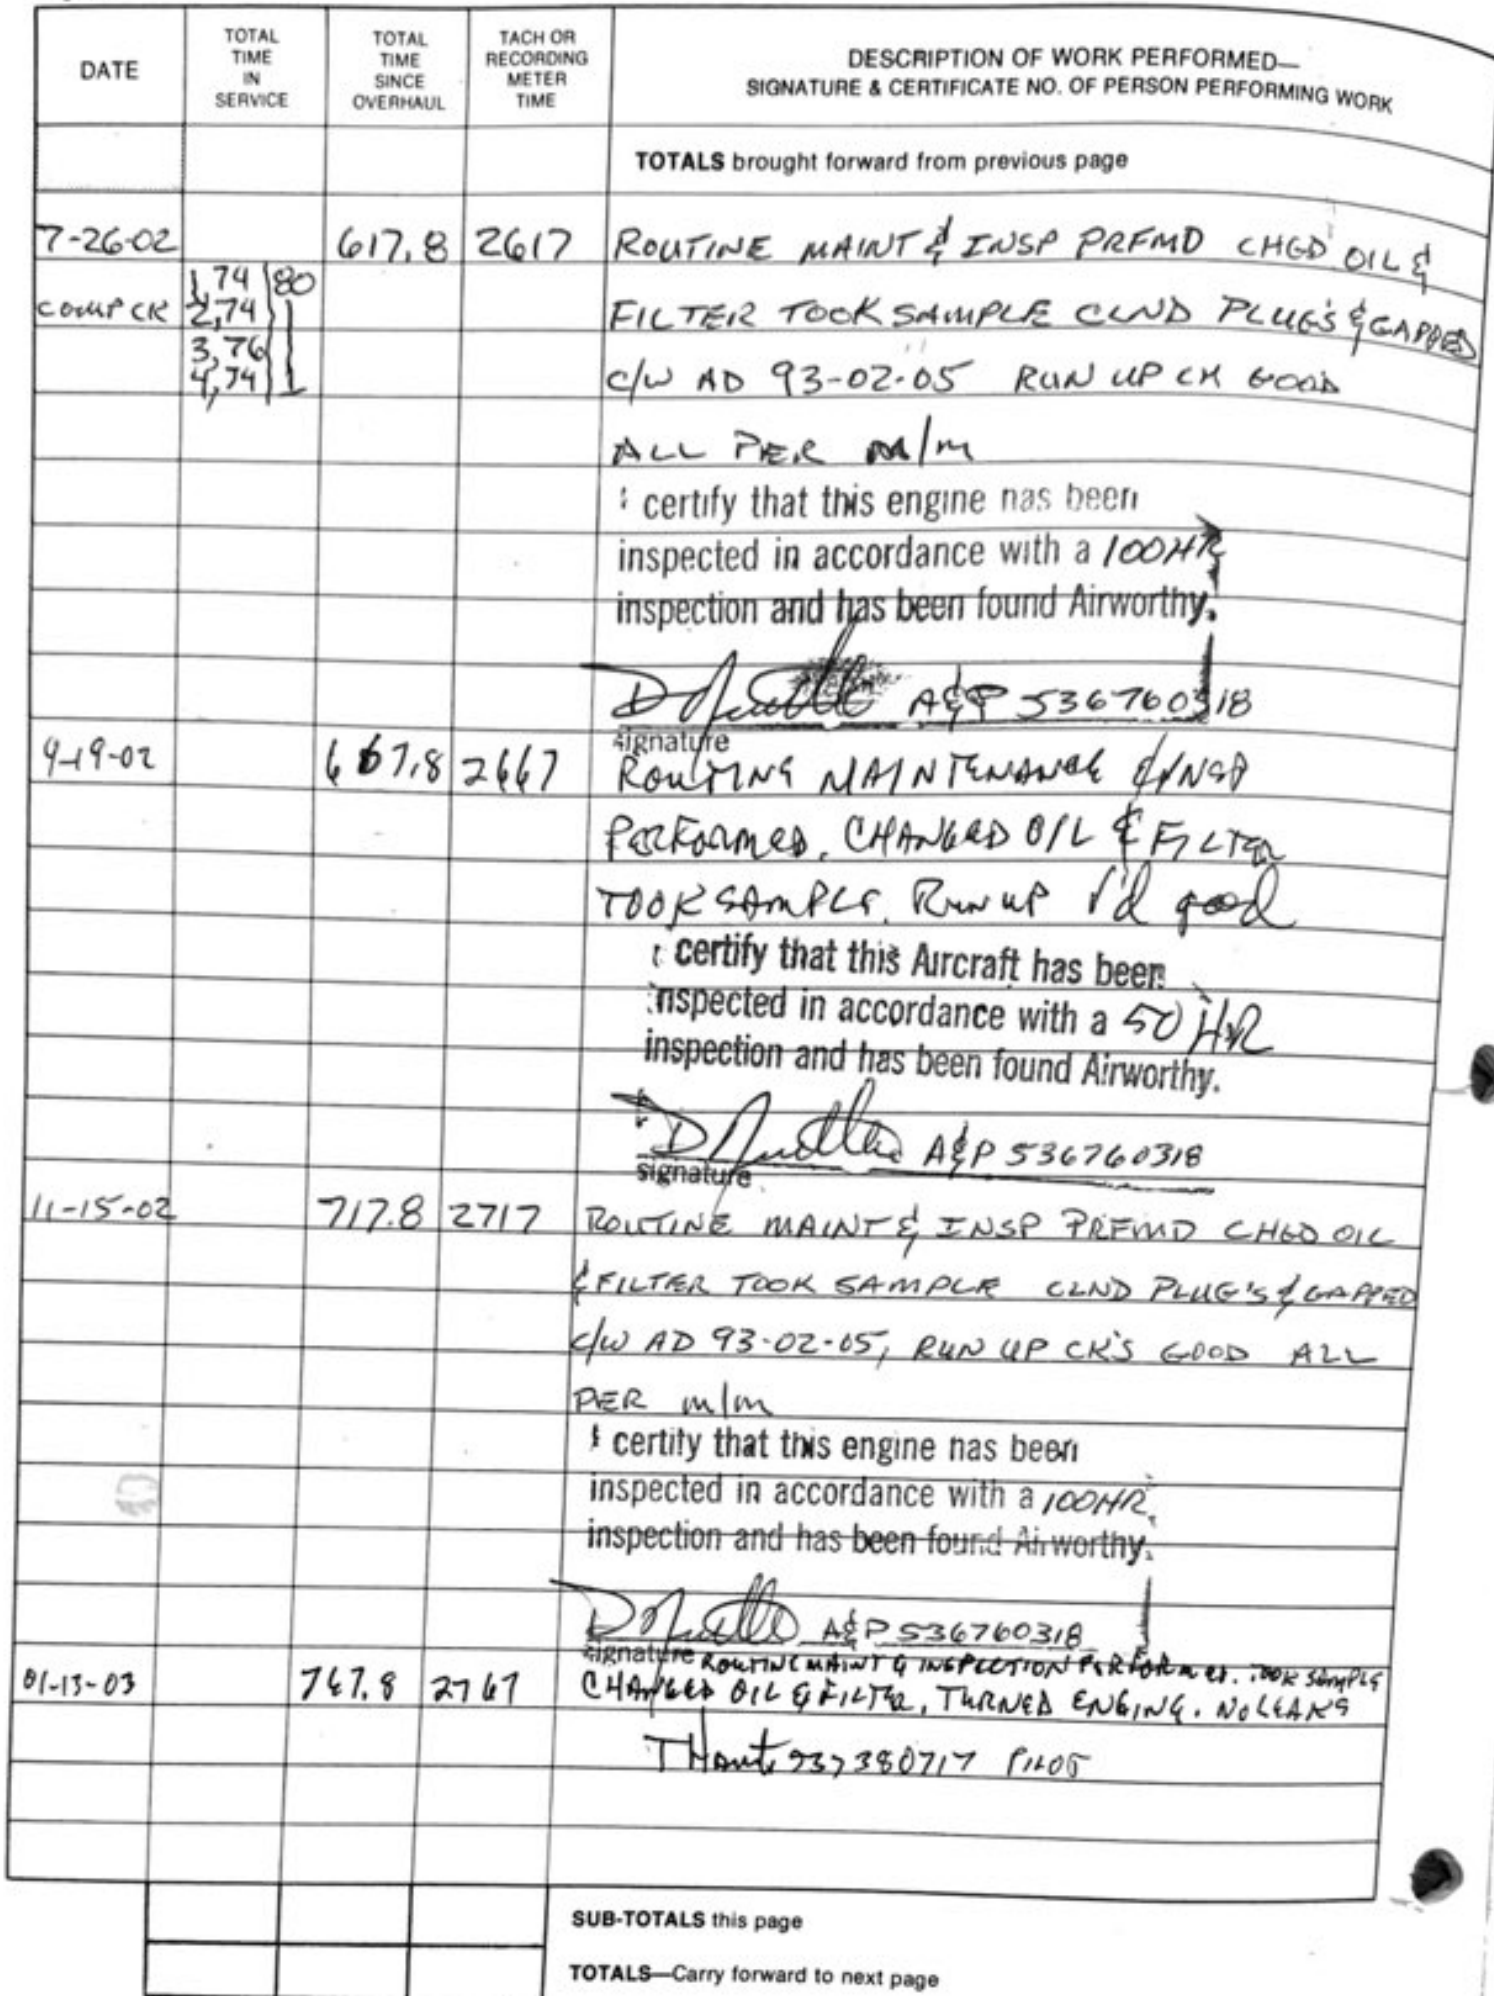 DATE
TOTAL TIME IN SERVICE
TOTAL TIME SINCE OVERHAUL
TACH OR RECORDING METER TIME
DESCRIPTION OF WORK PERFORMED—
SIGNATURE & CERTIFICATE NO. OF PERSON PERFORMING WORK
TOTALS brought forward from previous page
7-26-02 617.8 2617 ROUTINE MAINT & INSP PRFMD CHGD OIL &
COMP CK 1,74 80
2,74
3,76
4,74
FILTER TOOK SAMPLE CLND PLUG'S & GAPPED
C/W AD 93-02-05 RUN UP CK GOOD
ALL PER M/M
I certify that this engine has been
inspected in accordance with a 100HR
inspection and has been found Airworthy.
A&P 536760318
signature
9-19-02 667.8 2667 ROUTING MAINTENANCE & INSP
PERFORMED. CHANGED OIL & FILTER
TOOK SAMPLE. RUN UP √'d good
I certify that this Aircraft has been
inspected in accordance with a 50 HR
inspection and has been found Airworthy.
A&P 536760318
signature
11-15-02 717.8 2717 ROUTINE MAINT & INSP PRFMD CHGD OIL
& FILTER TOOK SAMPLE CLND PLUG'S & GAPPED
C/W AD 93-02-05, RUN UP CK'S GOOD ALL
PER m/m
I certify that this engine has been
inspected in accordance with a 100HR
inspection and has been found Airworthy.
A&P 536760318
signature ROUTINE MAINT & INSPECTION PERFORMED. TOOK SAMPLE
01-13-03 767.8 2767 CHANGED OIL & FILTER, TURNED ENGINE. NO LEAKS
PILOT
SUB-TOTALS this page
TOTALS—Carry forward to next page